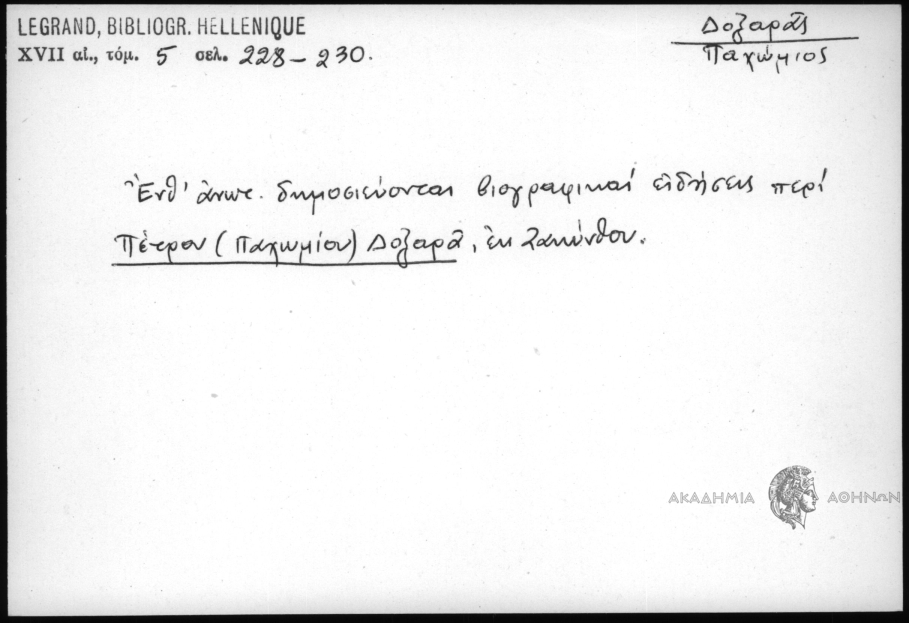 LEGRAND, BIBLIOGR. HELLENIQUE
XVII αἰ., τόμ. 5 σελ. 228 – 230.
Δοξαρᾶς
Παχώμιος
Ἔνθ' ἀνωτ. δημοσιεύονται βιογραφικαί εἰδήσεις περί
Πέτρου (Παχωμίου) Δοξαρᾶ, ἐκ Ζακύνθου.
ΑΚΑΔΗΜΙΑ ΑΘΗΝΩΝ